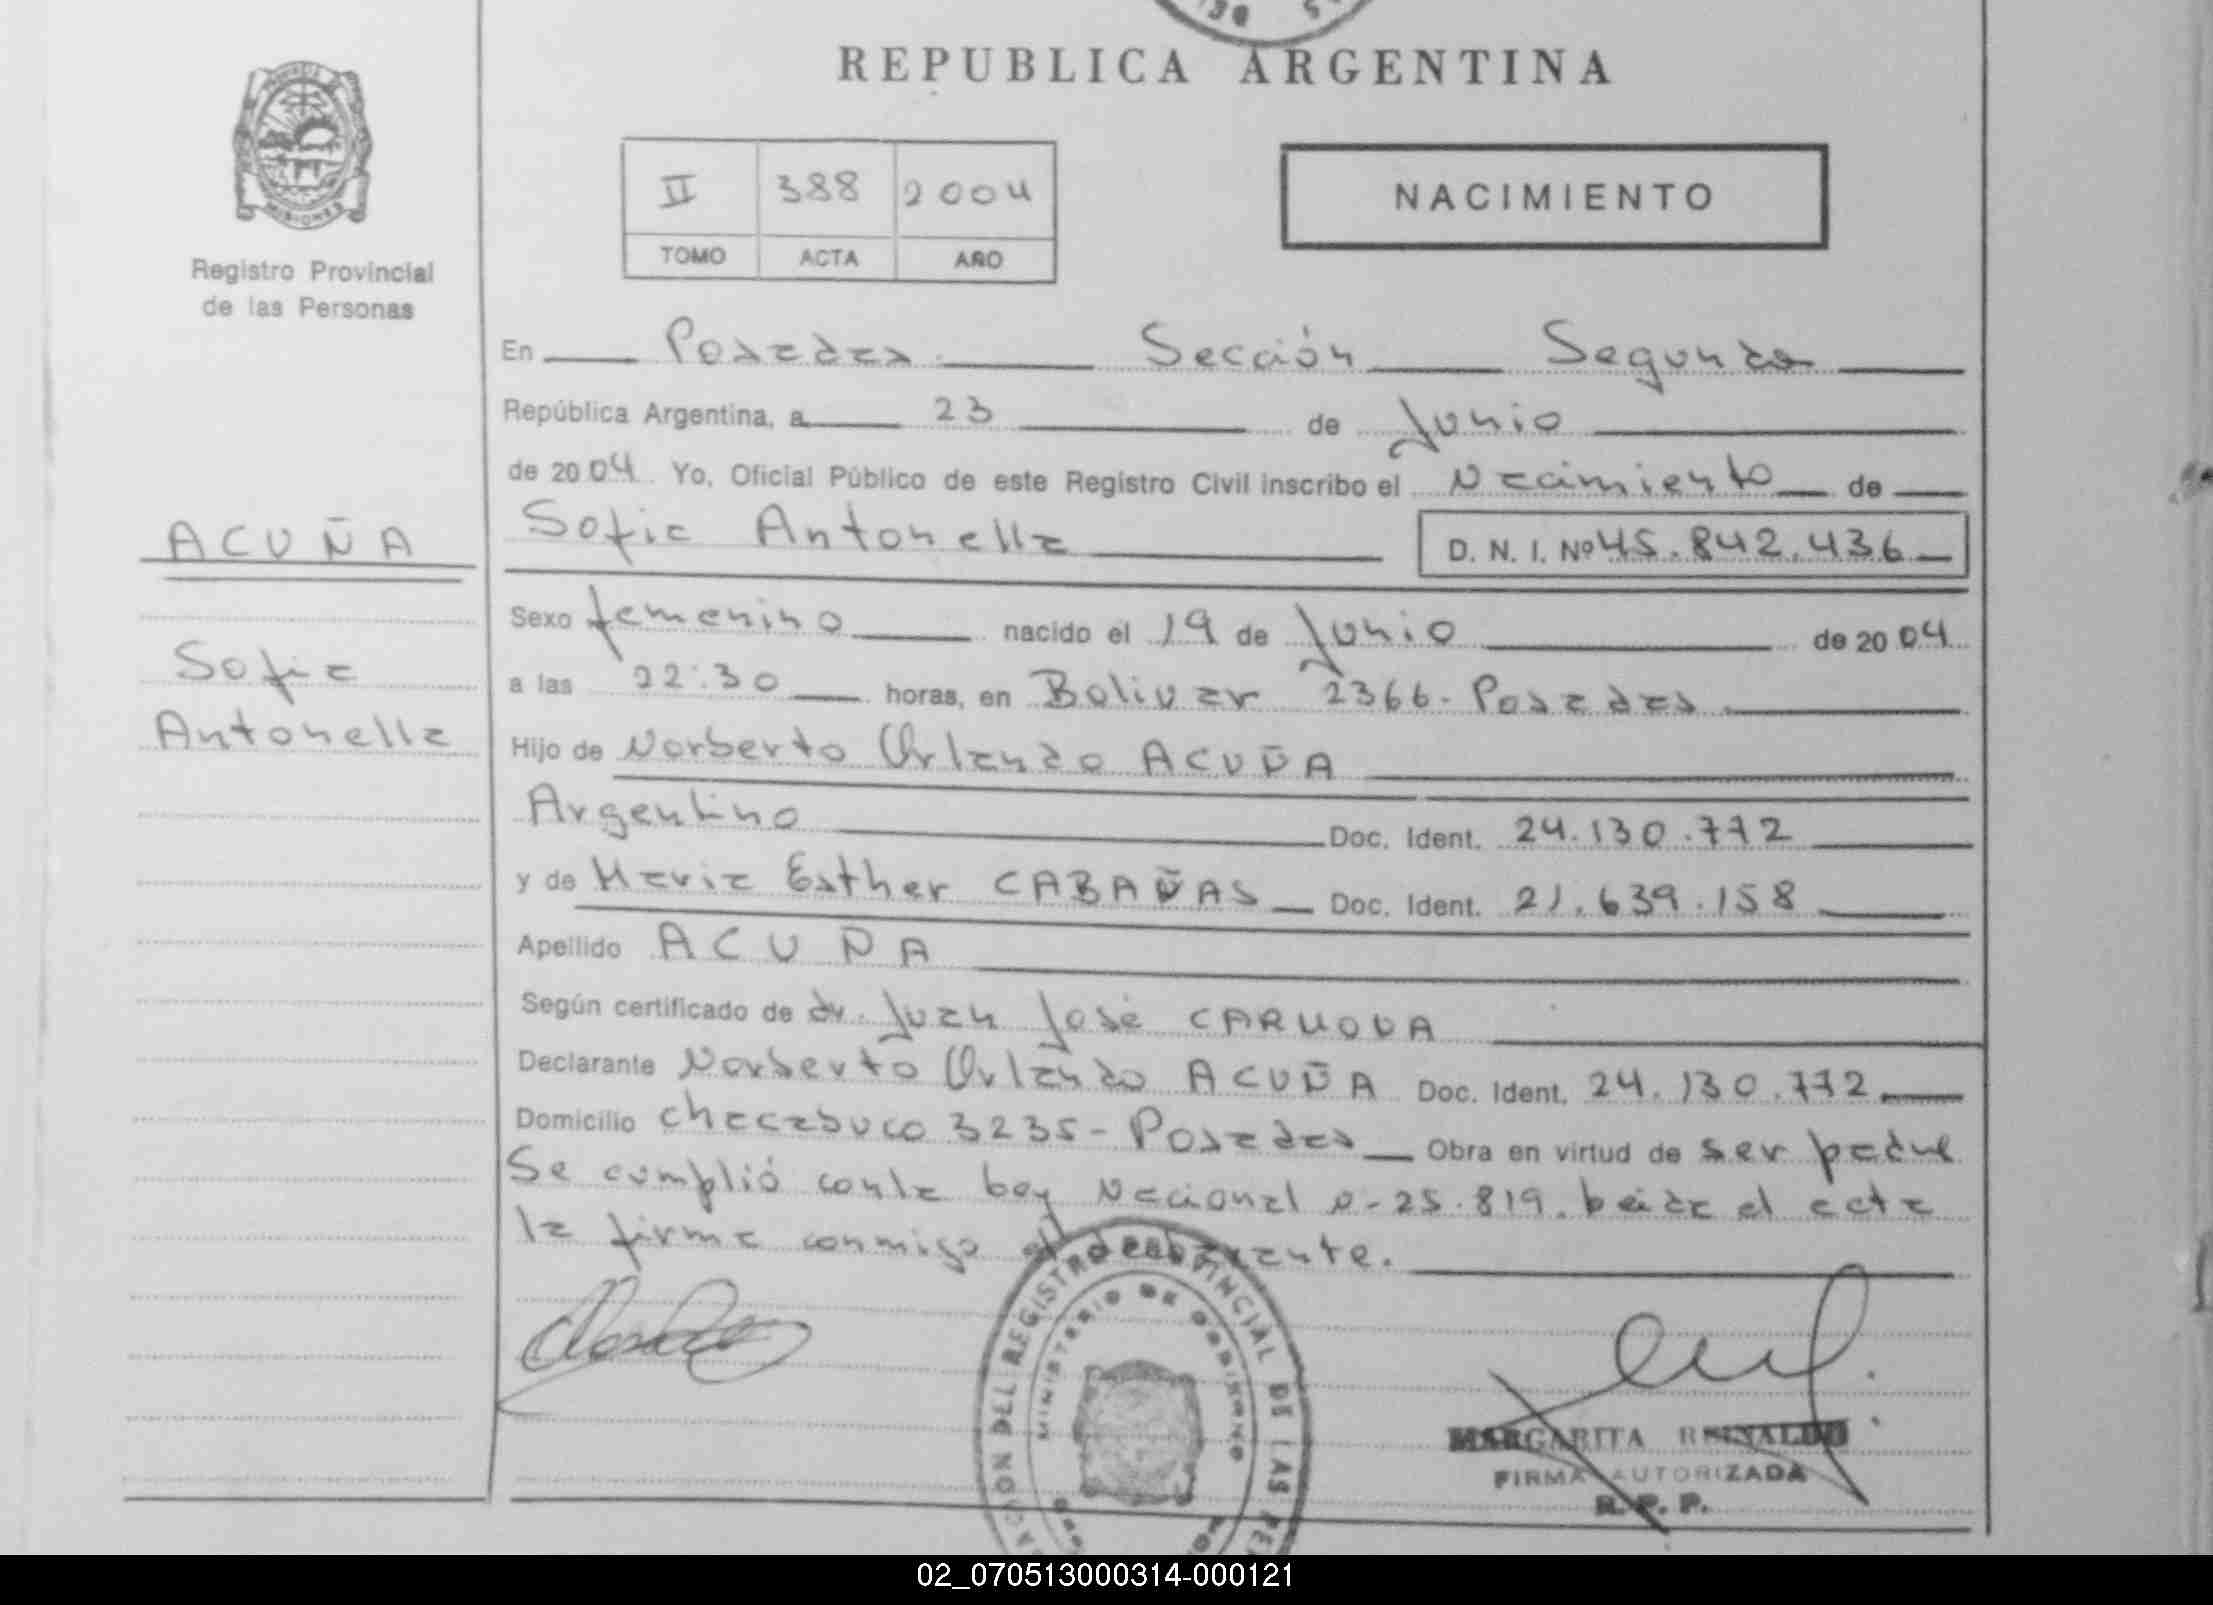 REPUBLICA ARGENTINA
MISIONES
Registro Provincial
de las Personas
II 388 2004
TOMO ACTA AÑO
NACIMIENTO
En Posadas Sección Segunda
República Argentina, a 23 de Junio
de 2004 Yo, Oficial Público de este Registro Civil inscribo el Nacimiento de
ACUÑA
Sofia Antonella D. N. I. Nº 45.842.436
Sofia
Antonella
Sexo femenino nacido el 19 de Junio de 2004
a las 22:30 horas, en Bolivar 2366- Posadas
Hijo de Norberto Orlando ACUÑA
Argentino Doc. Ident. 24.130.772
y de Maria Esther CABAÑAS Doc. Ident. 21.639.158
Apellido ACUÑA
Según certificado de dr. Juan José CARNOVA
Declarante Norberto Orlando ACUÑA Doc. Ident. 24.130.772
Domicilio Chacabuco 3235- Posadas Obra en virtud de ser padre
Se cumplió con la Ley Nacional n-25.819. Leida el acta
la firma conmigo el declarante.
DEL REGISTRO PROVINCIAL DE LAS
MINISTERIO DE GOBIERNO
MARGARITA
FIRMA AUTORIZADA
R. P. P.
02_070513000314-000121